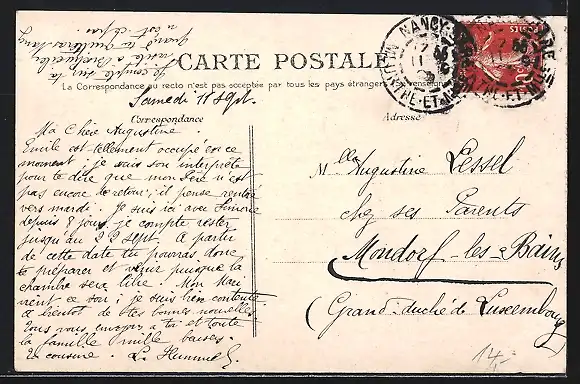 Je compte sur ta
visite à
Quand tu
n'est ce pas.
CARTE POSTALE
La Correspondance au recto n'est pas acceptée par tous les pays étrangers
NANCY
MEURTHE-ET-M
Samedi 11 Sept.
Correspondance
Adresse
Ma Chère Augustine.
Emile est tellement occupé en ce
moment, je suis son interprète
pour te dire que mon Père n'est
pas encore de retour; il pense rentrer
vers mardi. Je suis ici avec Simone
depuis 8 jours, je compte rester
jusqu'au 22 Sept. A partir
de cette date tu pourras donc
te préparer et venir puisque la
chambre sera libre. Mon
vient ce soir; je suis bien contente
à bientôt de tes bonnes nouvelles
Tous vous envoyons à toi et toute
la famille mille baisers.
Ta cousine. L. Hummel
Mlle Augustine Lessel
chez ses Parents
Mondorf-les-Bains
(Grand-duché de Luxembourg)
14,-